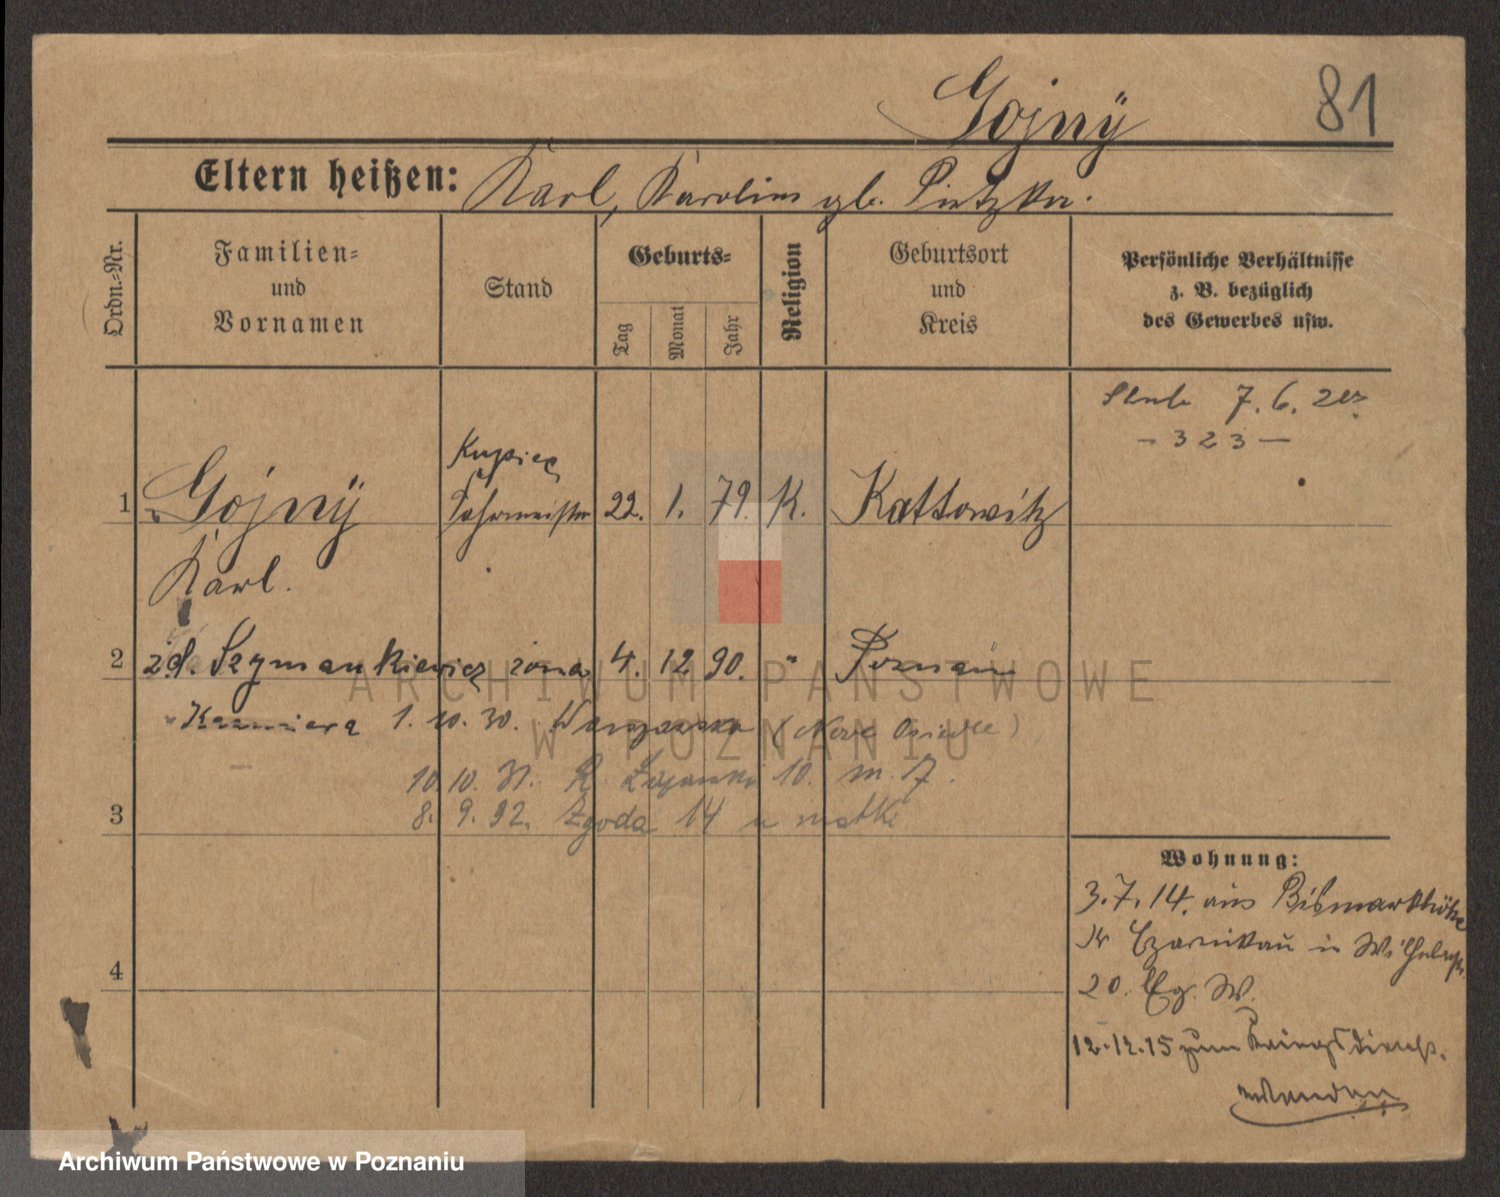 Gojnÿ 81
Eltern heißen: Karl, Karolina gb. Pietzka.
Ordn.-Nr.
Familien- und Vornamen
Stand
Geburts-
Tag
Monat
Jahr
Religion
Geburtsort und Kreis
Persönliche Verhältnisse
z. B. bezüglich
des Gewerbes usw.
7. 6. 
- 323 -
Kupiec
1 Gojnÿ Fahrmeister 22. 1. 79. K. Kattowitz
Karl.
2 zd. Szymankiewicz żona 4. 12 90. " Poznań
Kazimiera 1. 10. 30. Warszawska (Nowe Osiedle)
10. 10. 31. 10. m. 17.
8. 9. 32. Zgoda 14 u matki
3
4
Wohnung:
3.7.14. aus Bismarkshöhe
Kr Czarnikau in Wilhelmstr.
20. W.
12.12.15 zum Kriegsdienst.
ARCHIWUM PAŃSTWOWE
W POZNANIU
Archiwum Państwowe w Poznaniu